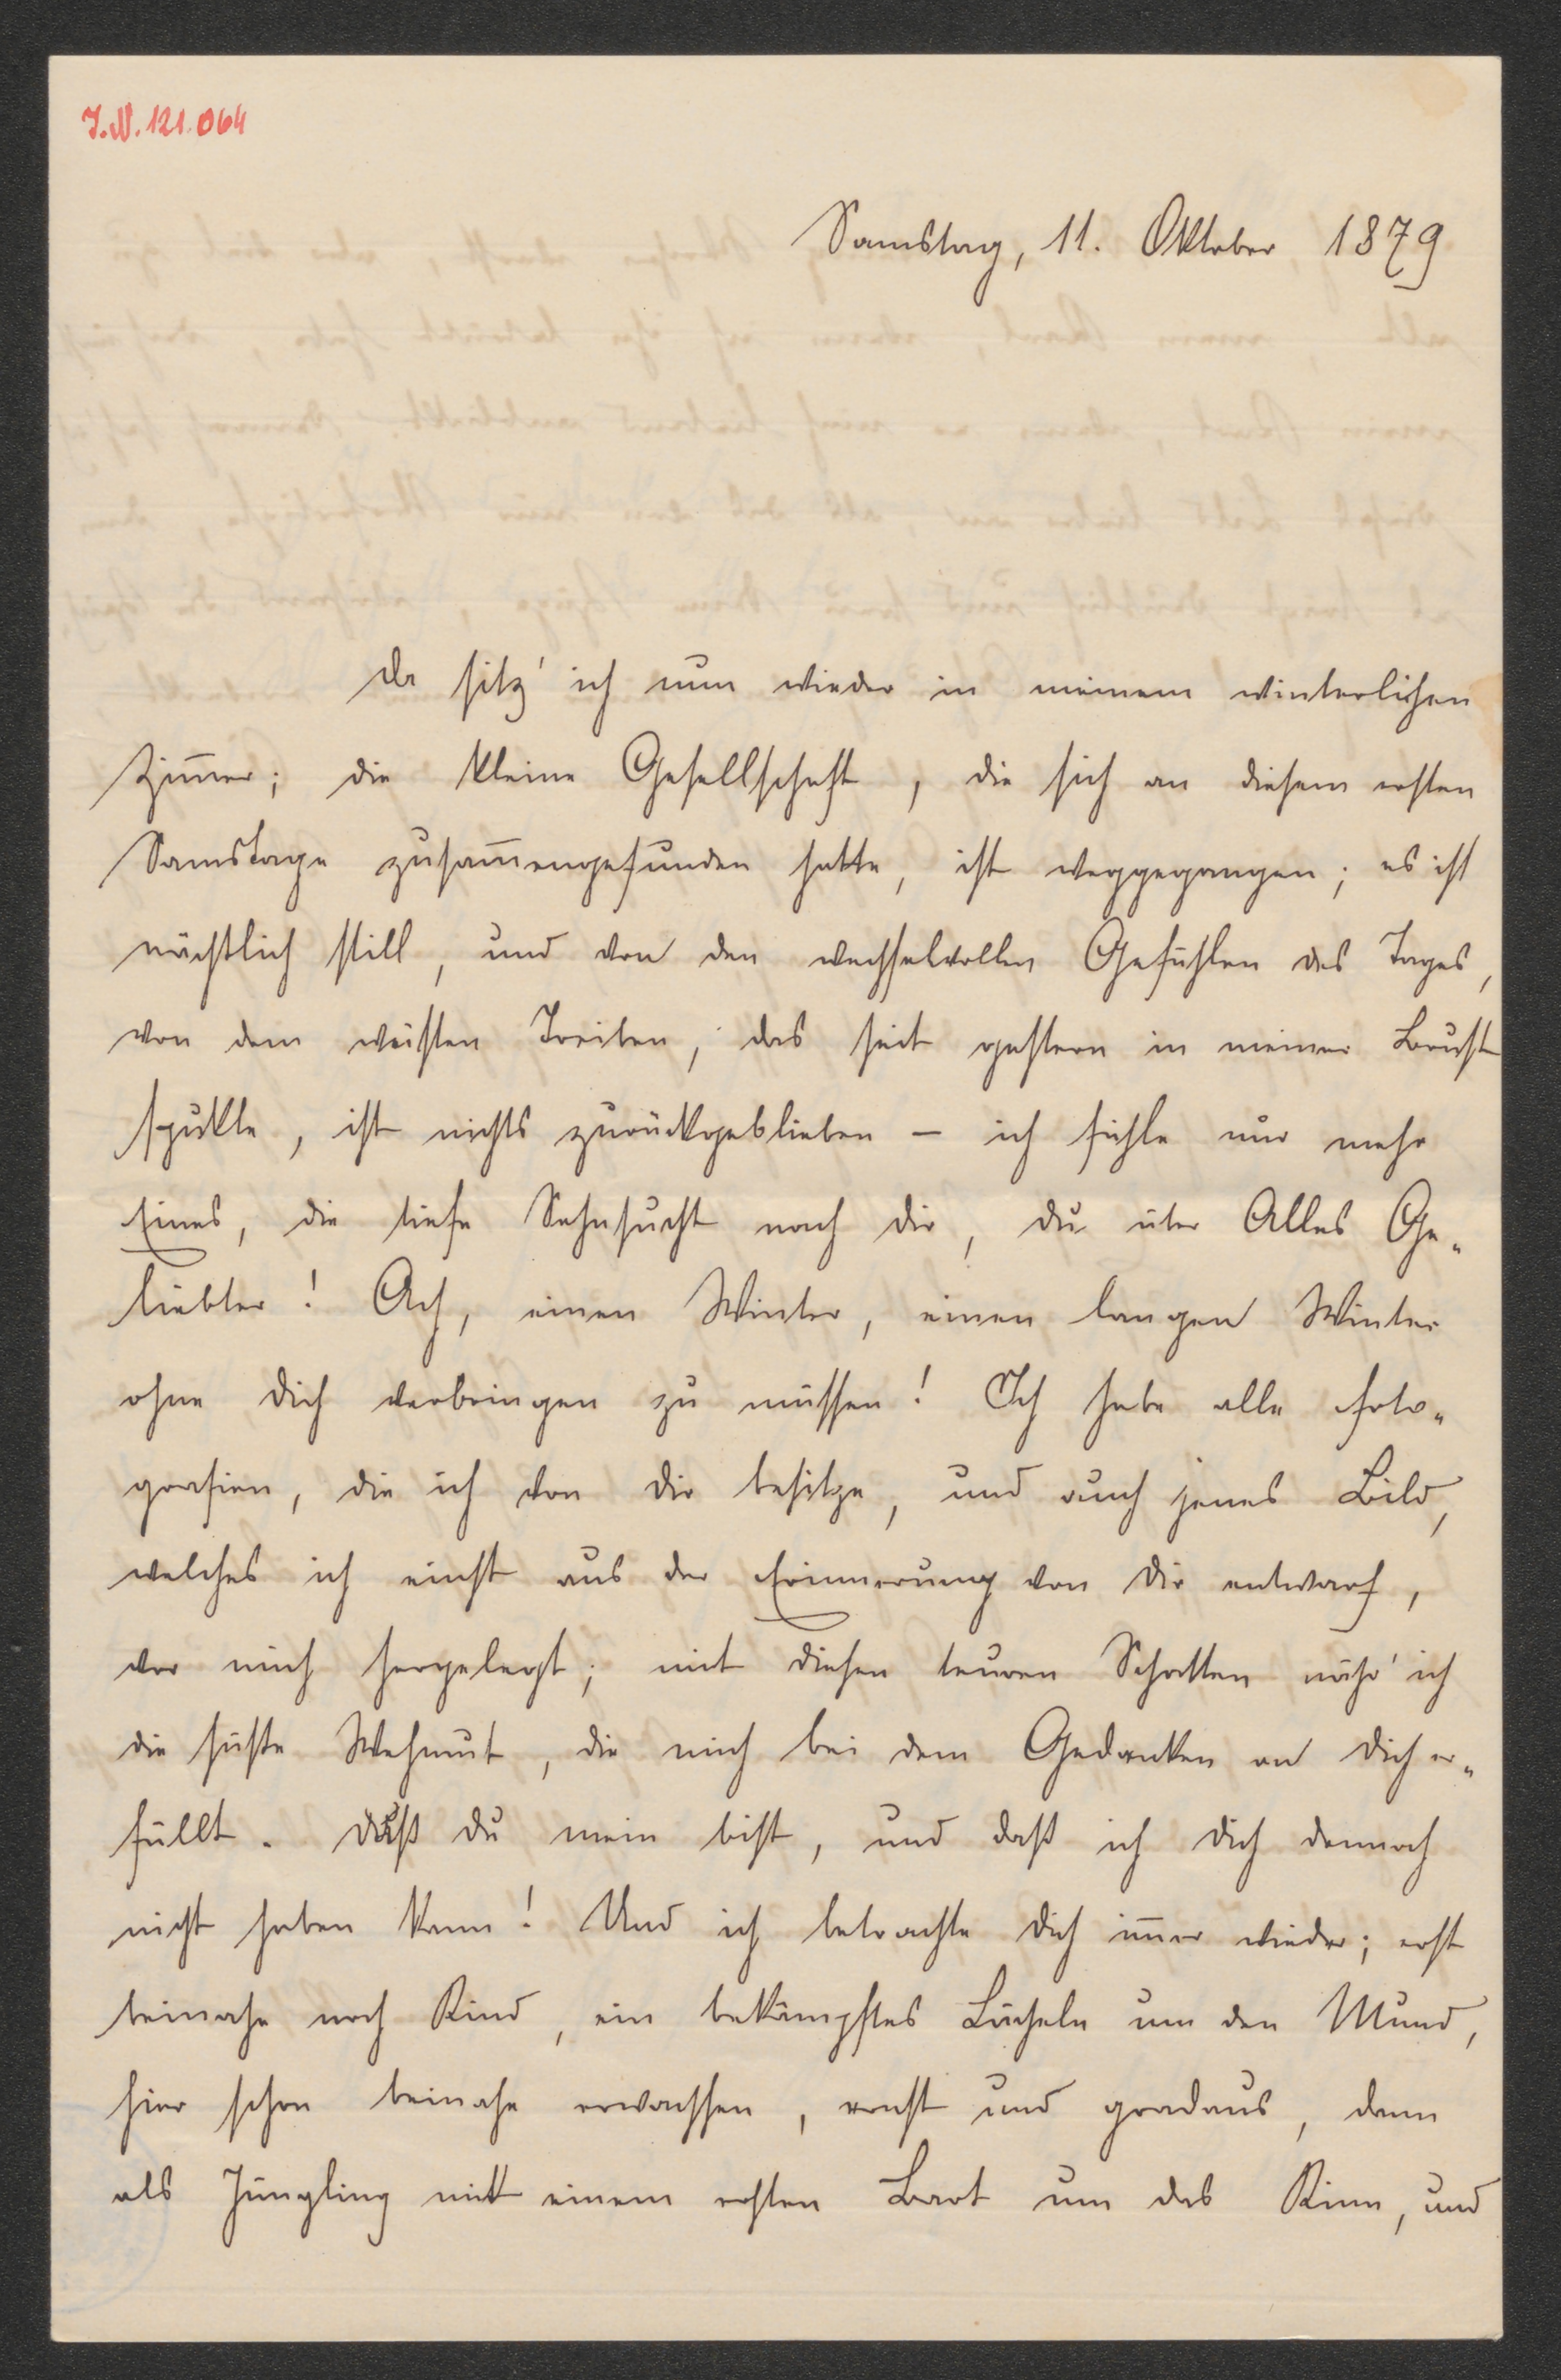 I.N. 121.064
Samstag, 11. Oktober 1879
Da sitz' ich nun wieder in meinem winterlichen
Zim̄er; die kleine Gesellschaft, die sich an diesem ersten
Samstage zusam̄engefunden hatte, ist weggegangen; es ist
nächtlich still, und von den wechselvollen Gefühlen des Tages,
von dem wüsten Treiben, das seit gestern in meiner Brust
spukte, ist nichts zurückgeblieben – ich fühle nur mehr
Eines, die tiefe Sehnsucht nach dir, du über Alles Ge„
liebter! Ach, einen Winter, einen langen Winter
ohne dich verbringen zu müssen! Ich habe alle Foto„
grafien, die ich von dir besitze, und auch jenes Bild,
welches ich einst aus der Erinnerung von dir entwarf,
vor mich hergelegt; mit diesen teuren Schatten nähr' ich
die süße Wehmut, die mich bei dem Gedanken an dich er„
füllt. Daß du mein bist, und daß ich dich dennoch
nicht haben kann! Und ich betrachte dich im̄er wieder; erst
beinahe noch Kind, ein bekämpftes Lächeln um den Mund,
hier schon beinahe erwachsen, ernst und gradaus, dann
als Jüngling mit einem ersten Bart um das Kinn, und